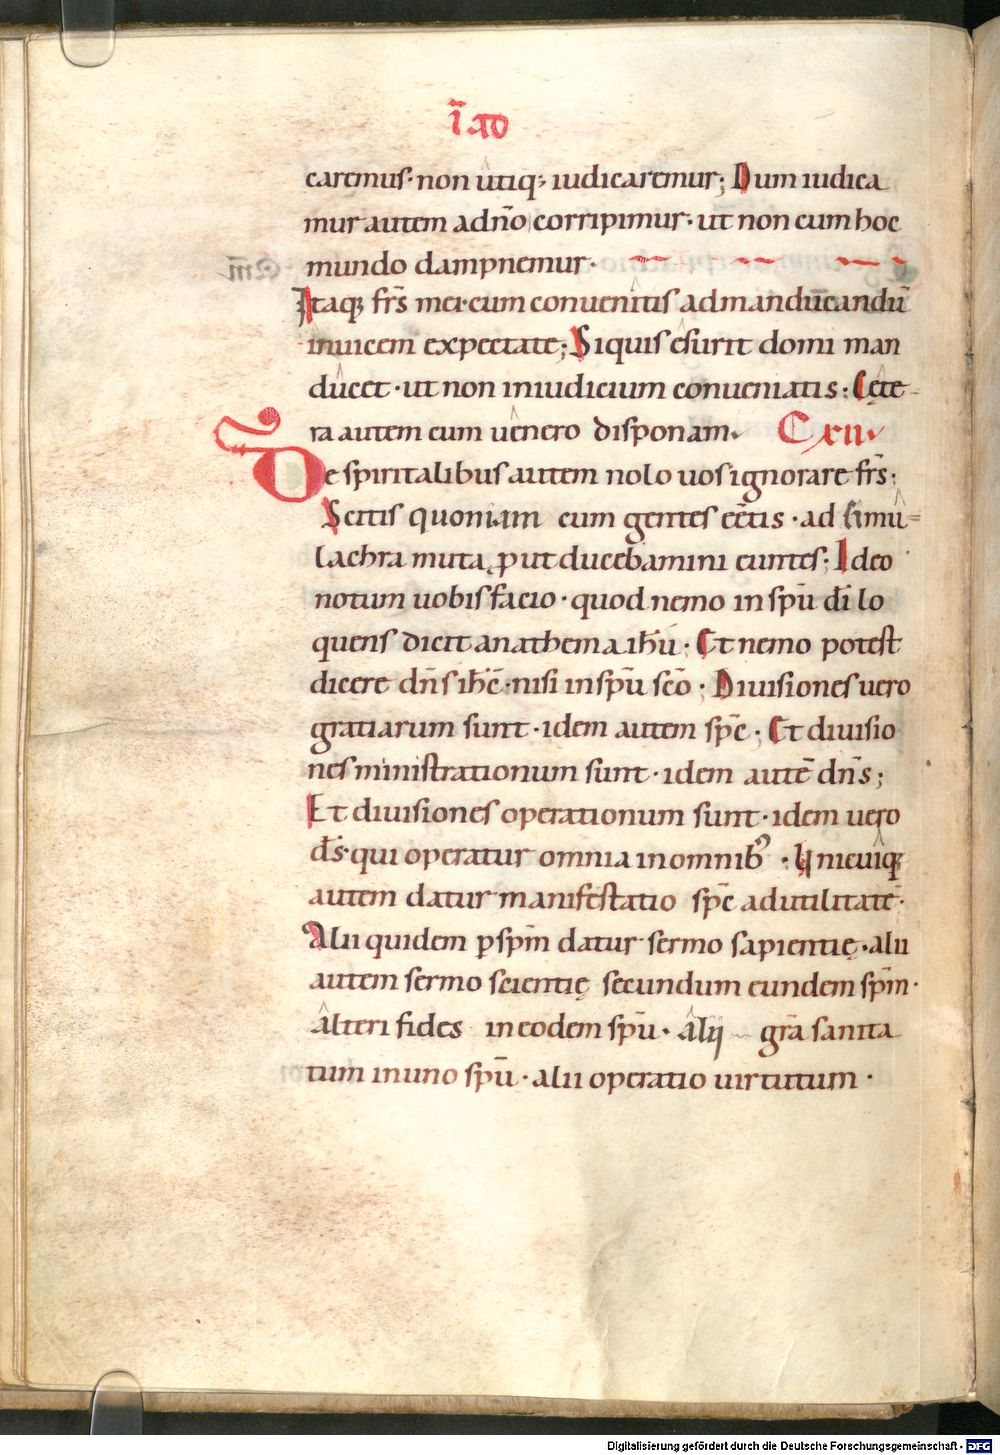 ī ad
caremus· non utiq; iudicaremur; Dum iudica
mur autem adn̄o corripimur· ut non cum hoc
mundo dampnemur·
Itaq; frs̄ mei· cum conuenitis admanducandū
inuicem expectate; Siquis esurit domi man
ducet· ut non iniudicium conueniatis: Cęte-
ra autem cum uenero disponam. C xii
De spiritalibus autem nolo uos ignorare frs̄·
Scitis quoniam cum gentes eētis· ad simu=
lachra muta, ꝓut ducebamini euntes; Ideo
notum uobis facio· quod nemo in spū dī lo
quens dicit anathema ihū; Et nemo potest
dicere dn̄s ihc̄· nisi in spū scō; Diuisiones uero
gratiarum sunt· idem autem spc̄; Et diuisio
nes ministrationum sunt· idem autē dn̄s;
Et diuisiones operationum sunt· idem uero
ds̄· qui operatur omnia in omnib; · Unicuiq;
autem datur manifestatio spc̄ adutilitatē·
Alii quidem ꝑ spm̄ datur sermo sapientię· alii
autem sermo scientię secundum eundem spm̄·
alteri fides in eodem spū· alij gr̄a sanita
tum in uno spū· alii operatio uirtutum ·
Digitalisierung gefördert durch die Deutsche Forschungsgemeinschaft - DFG